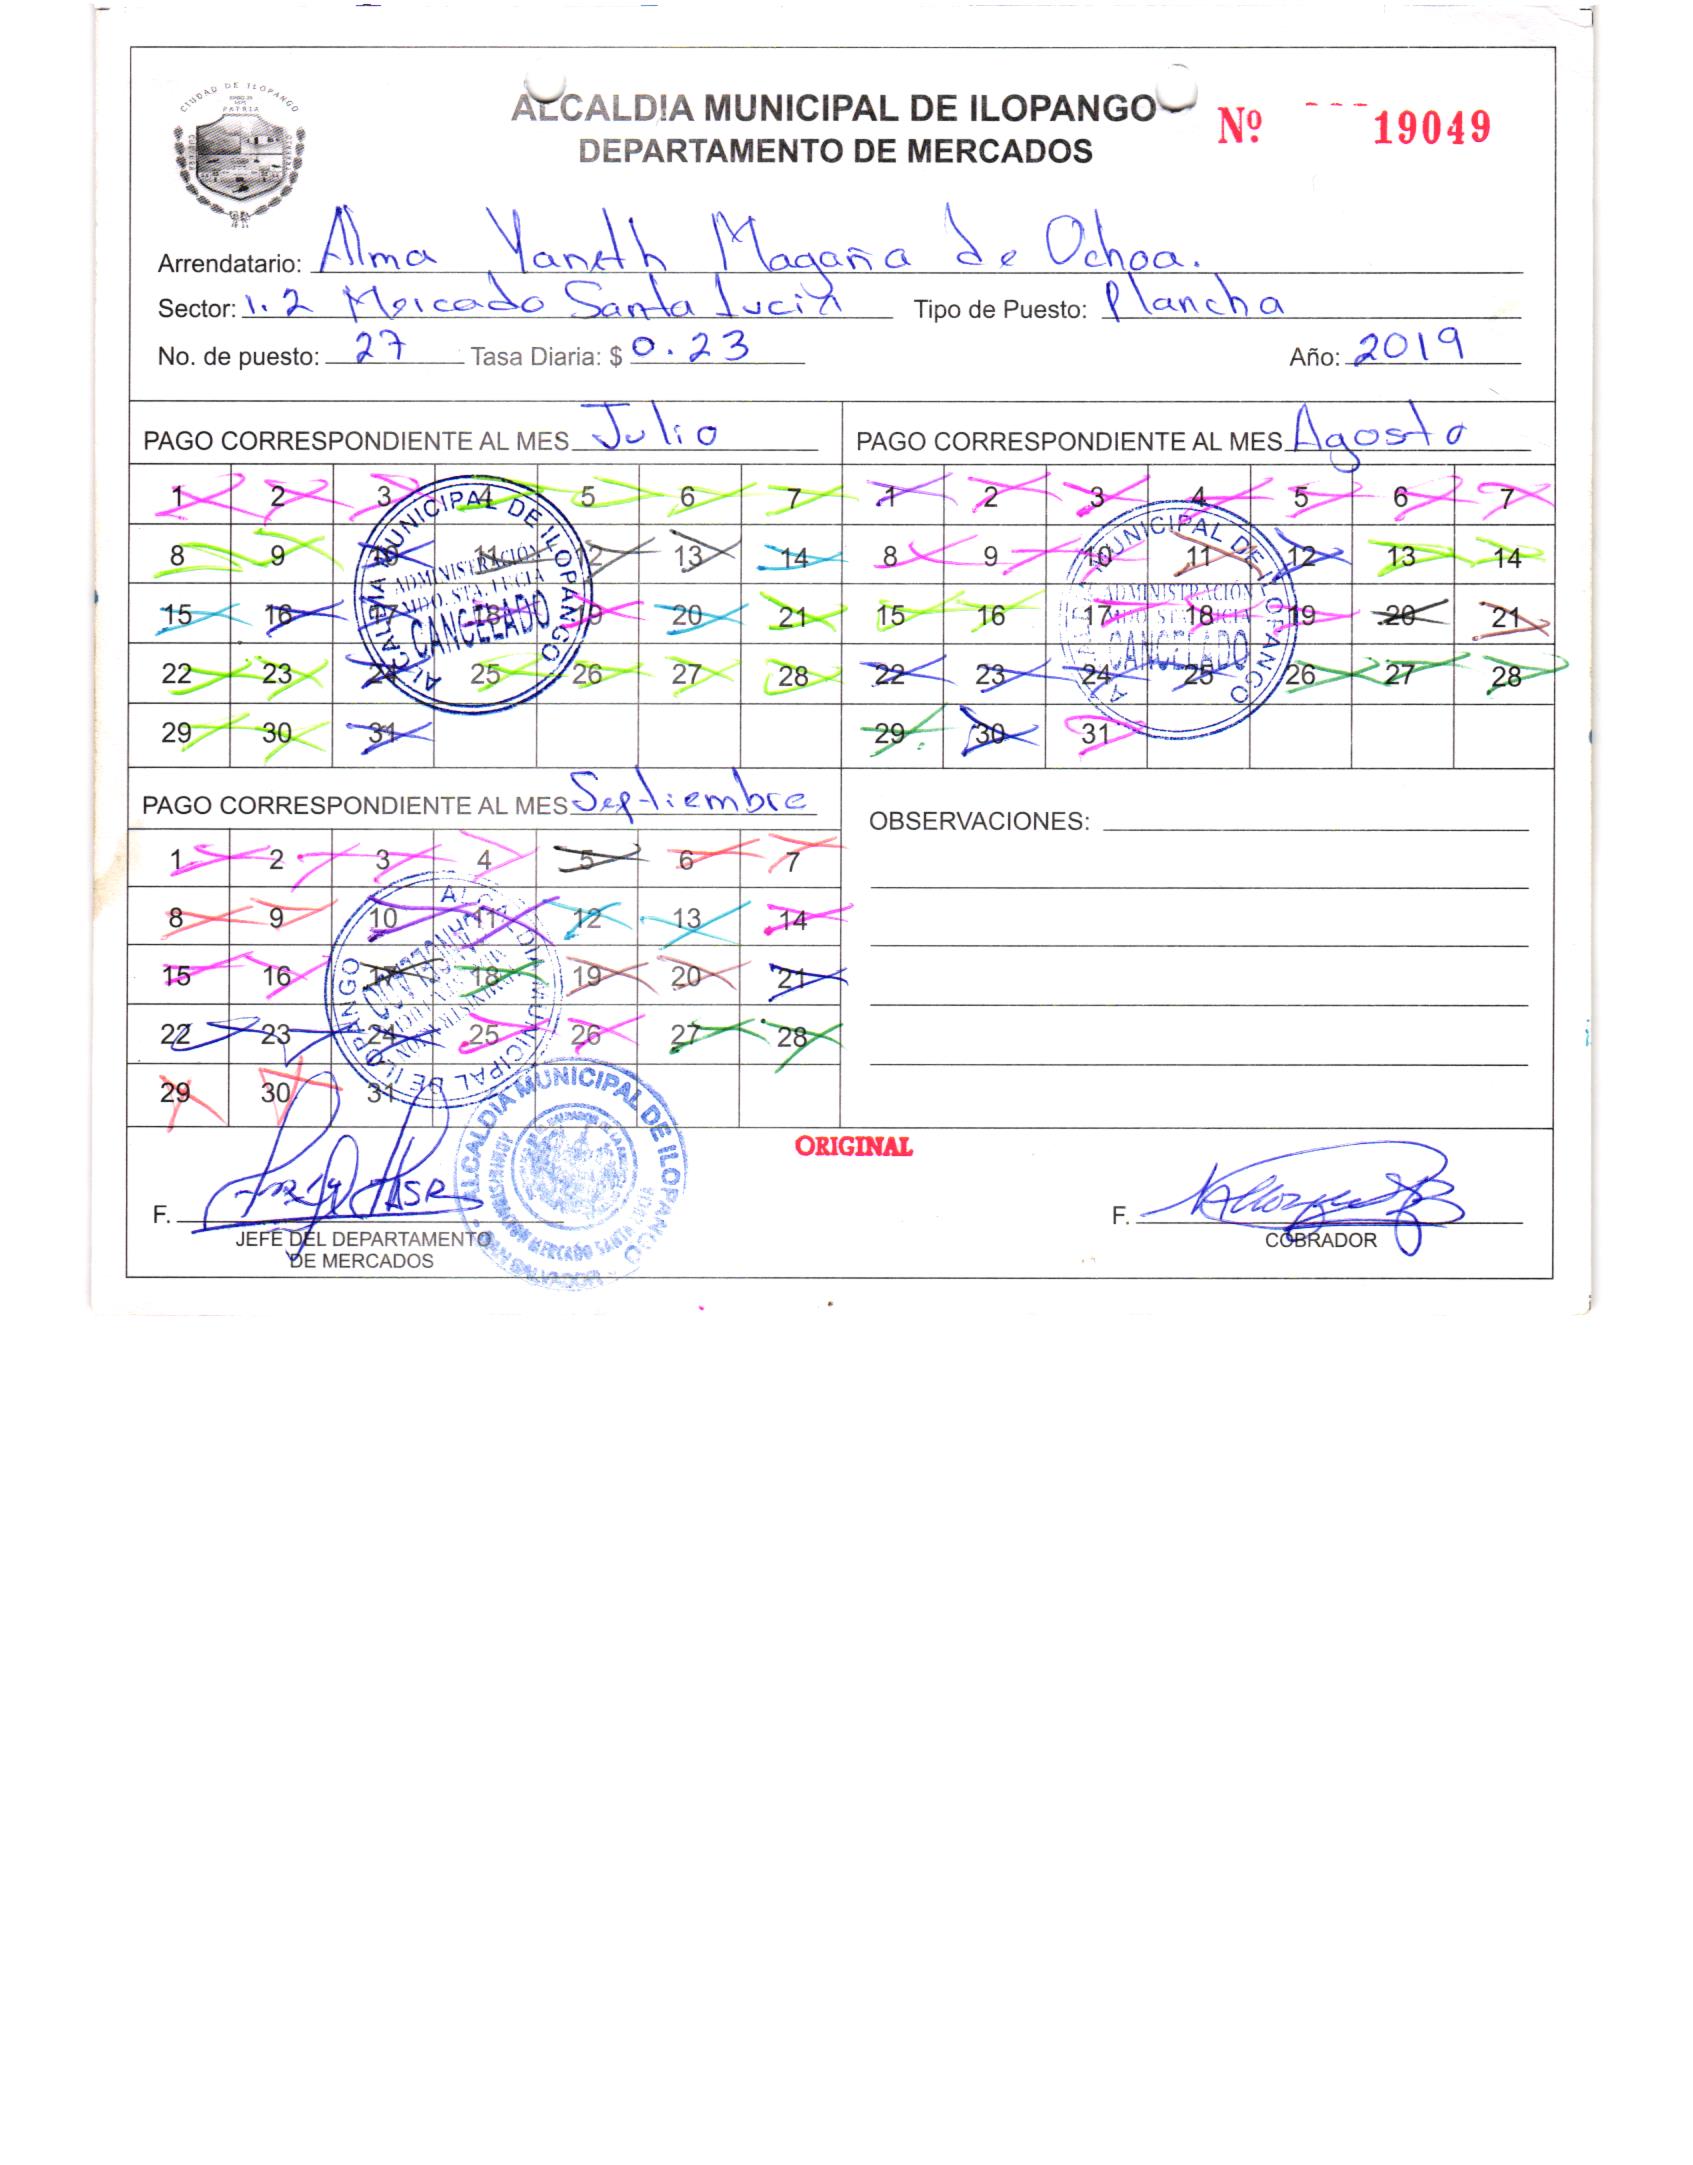 CIUDAD DE ILOPANGO
PATRIA
ALCALDIA MUNICIPAL DE ILOPANGO
DEPARTAMENTO DE MERCADOS
Nº 19049
Arrendatario: Alma Yaneth Magaña de Ochoa.
Sector: 1.2 Mercado Santa Lucia Tipo de Puesto: Plancha
No. de puesto: 27 Tasa Diaria: $ 0.23 Año: 2019
PAGO CORRESPONDIENTE AL MES Julio
1 2 3 4 5 6 7
8 9 10 11 12 13 14
15 16 17 18 19 20 21
22 23 24 25 26 27 28
29 30 31
ALCALDIA MUNICIPAL DE ILOPANGO
ADMINISTRACIÓN
MDO. STA. LUCIA
CANCELADO
PAGO CORRESPONDIENTE AL MES Agosto
1 2 3 4 5 6 7
8 9 10 11 12 13 14
15 16 17 18 19 20 21
22 23 24 25 26 27 28
29 30 31
MUNICIPAL DE ILOPANGO
ADMINISTRACIÓN
MDO. STA. LUCIA
CANCELADO
PAGO CORRESPONDIENTE AL MES Septiembre
1 2 3 4 5 6 7
8 9 10 11 12 13 14
15 16 17 18 19 20 21
22 23 24 25 26 27 28
29 30 31
ALCALDIA MUNICIPAL DE ILOPANGO
OBSERVACIONES:
ORIGINAL
F.
JEFE DEL DEPARTAMENTO
DE MERCADOS
ALCALDIA MUNICIPAL DE ILOPANGO
ADMINISTRACION MERCADO SANTA LUCIA
SAN SALVADOR
F.
COBRADOR